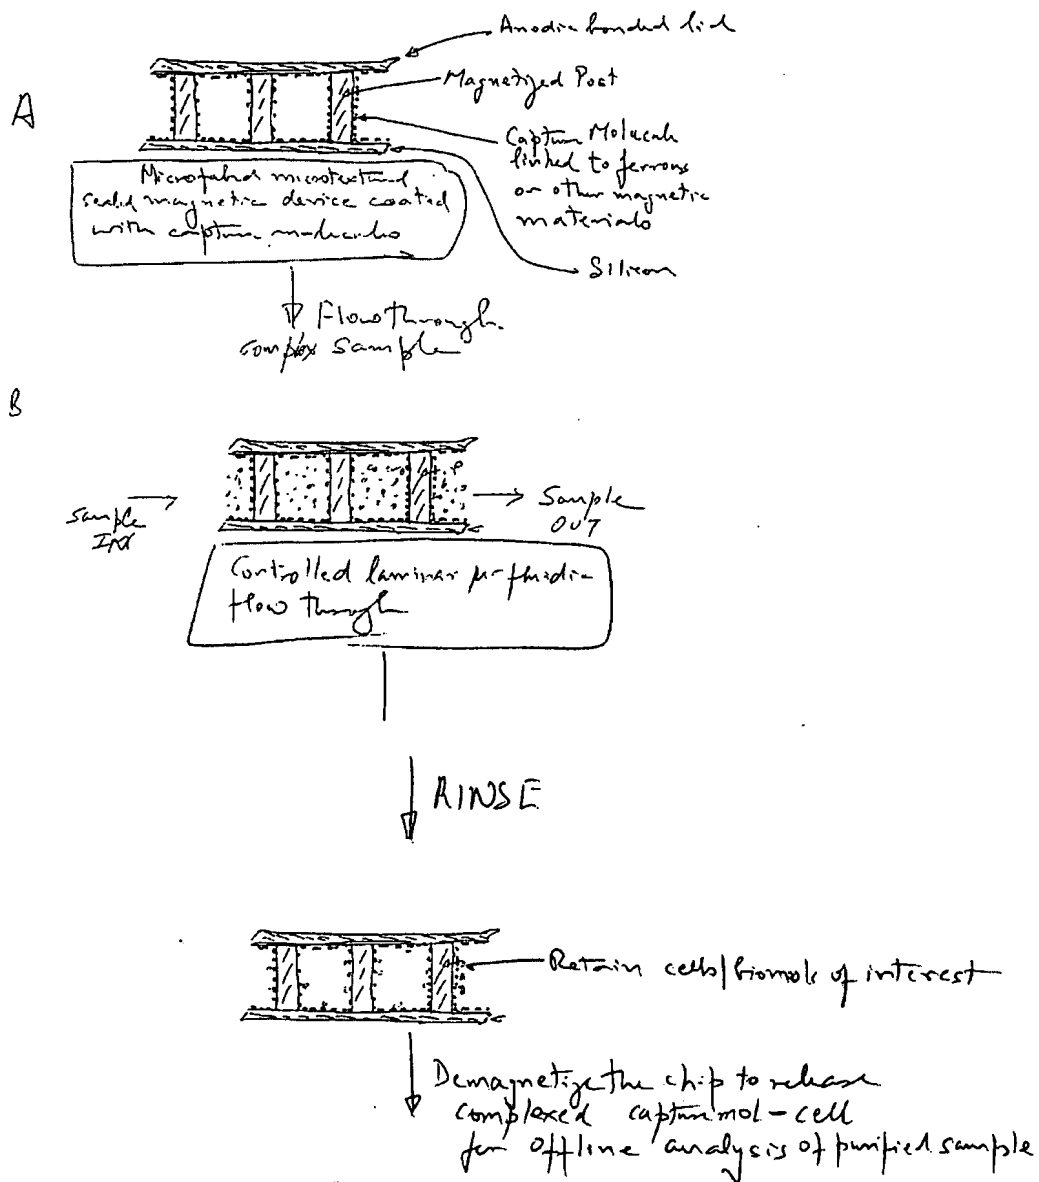 Anodic bonded lid
A
Magnetized Post
Capture Molecule
linked to ferrous
or other magnetic
materials
Silicon
Microfabed microtextured
sealed magnetic device coated
with capture molecules
Flow through
complex sample
B
Sample
IN
Sample
OUT
Controlled laminar μ-fluidic
flow through
RINSE
Retain cells/biomols of interest
Demagnetize the chip to release
complexed capture mol-cell
for offline analysis of purified sample